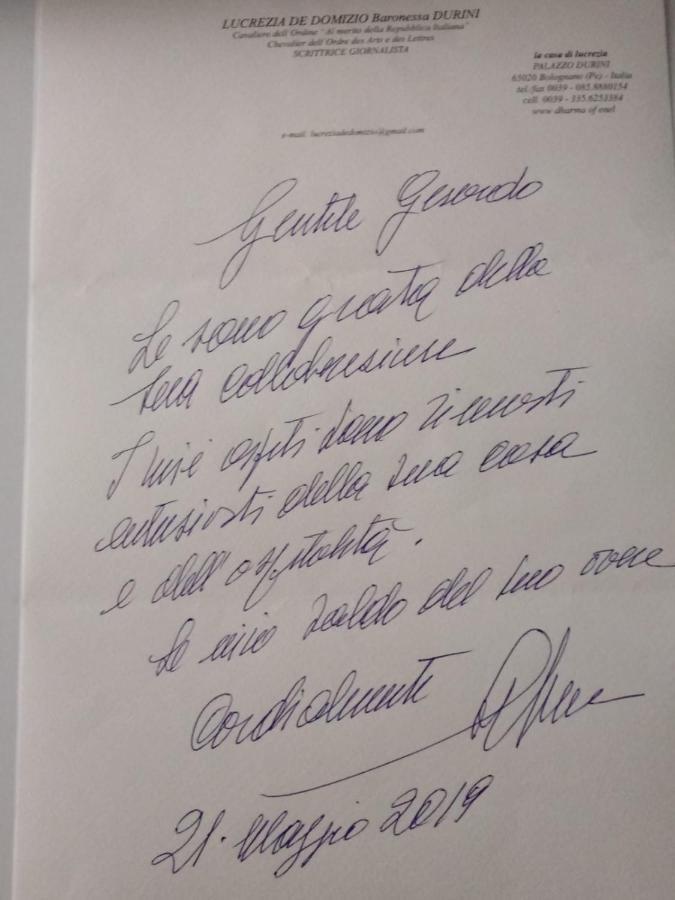 LUCREZIA DE DOMIZIO Baronessa DURINI
Cavaliere dell'Ordine "Al merito della Repubblica Italiana"
Chevalier dell'Ordre des Arts e des Lettres
SCRITTRICE GIORNALISTA
la casa di lucrezia
PALAZZO DURINI
65020 Bolognano (Pe) - Italia
tel./fax 0039 - 085.8880154
cell. 0039 - 335.6253384
www dharma of enel
e-mail: lucreziadedomizio@gmail.com
Gentile Gesondo
Le sono grata della
sua collaborazione
I miei ospiti sono rimasti
entusiasti della sua casa
e dell'ospitalità.
Le saldo del suo
Cordialmente
21. Maggio 2019